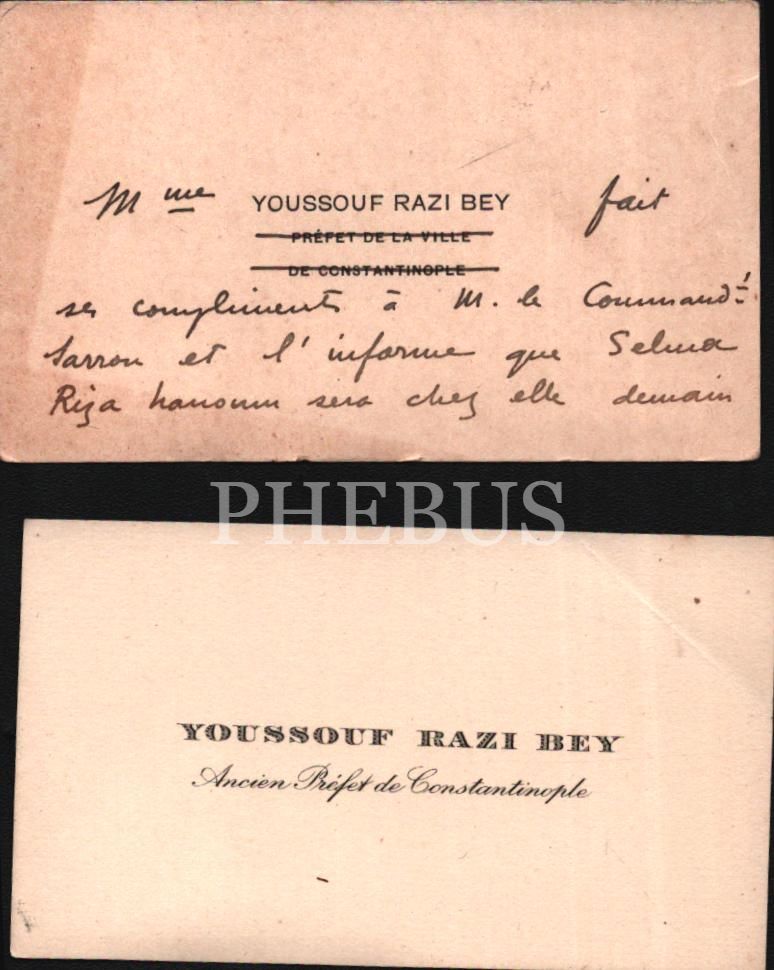 Mme YOUSSOUF RAZI BEY fait
PRÉFET DE LA VILLE
DE CONSTANTINOPLE
ses compliments à M. le Command.t
Sarrou et l'informe que Selma
Riza hanoum sera chez elle demain
PHEBUS
YOUSSOUF RAZI BEY
Ancien Préfet de Constantinople